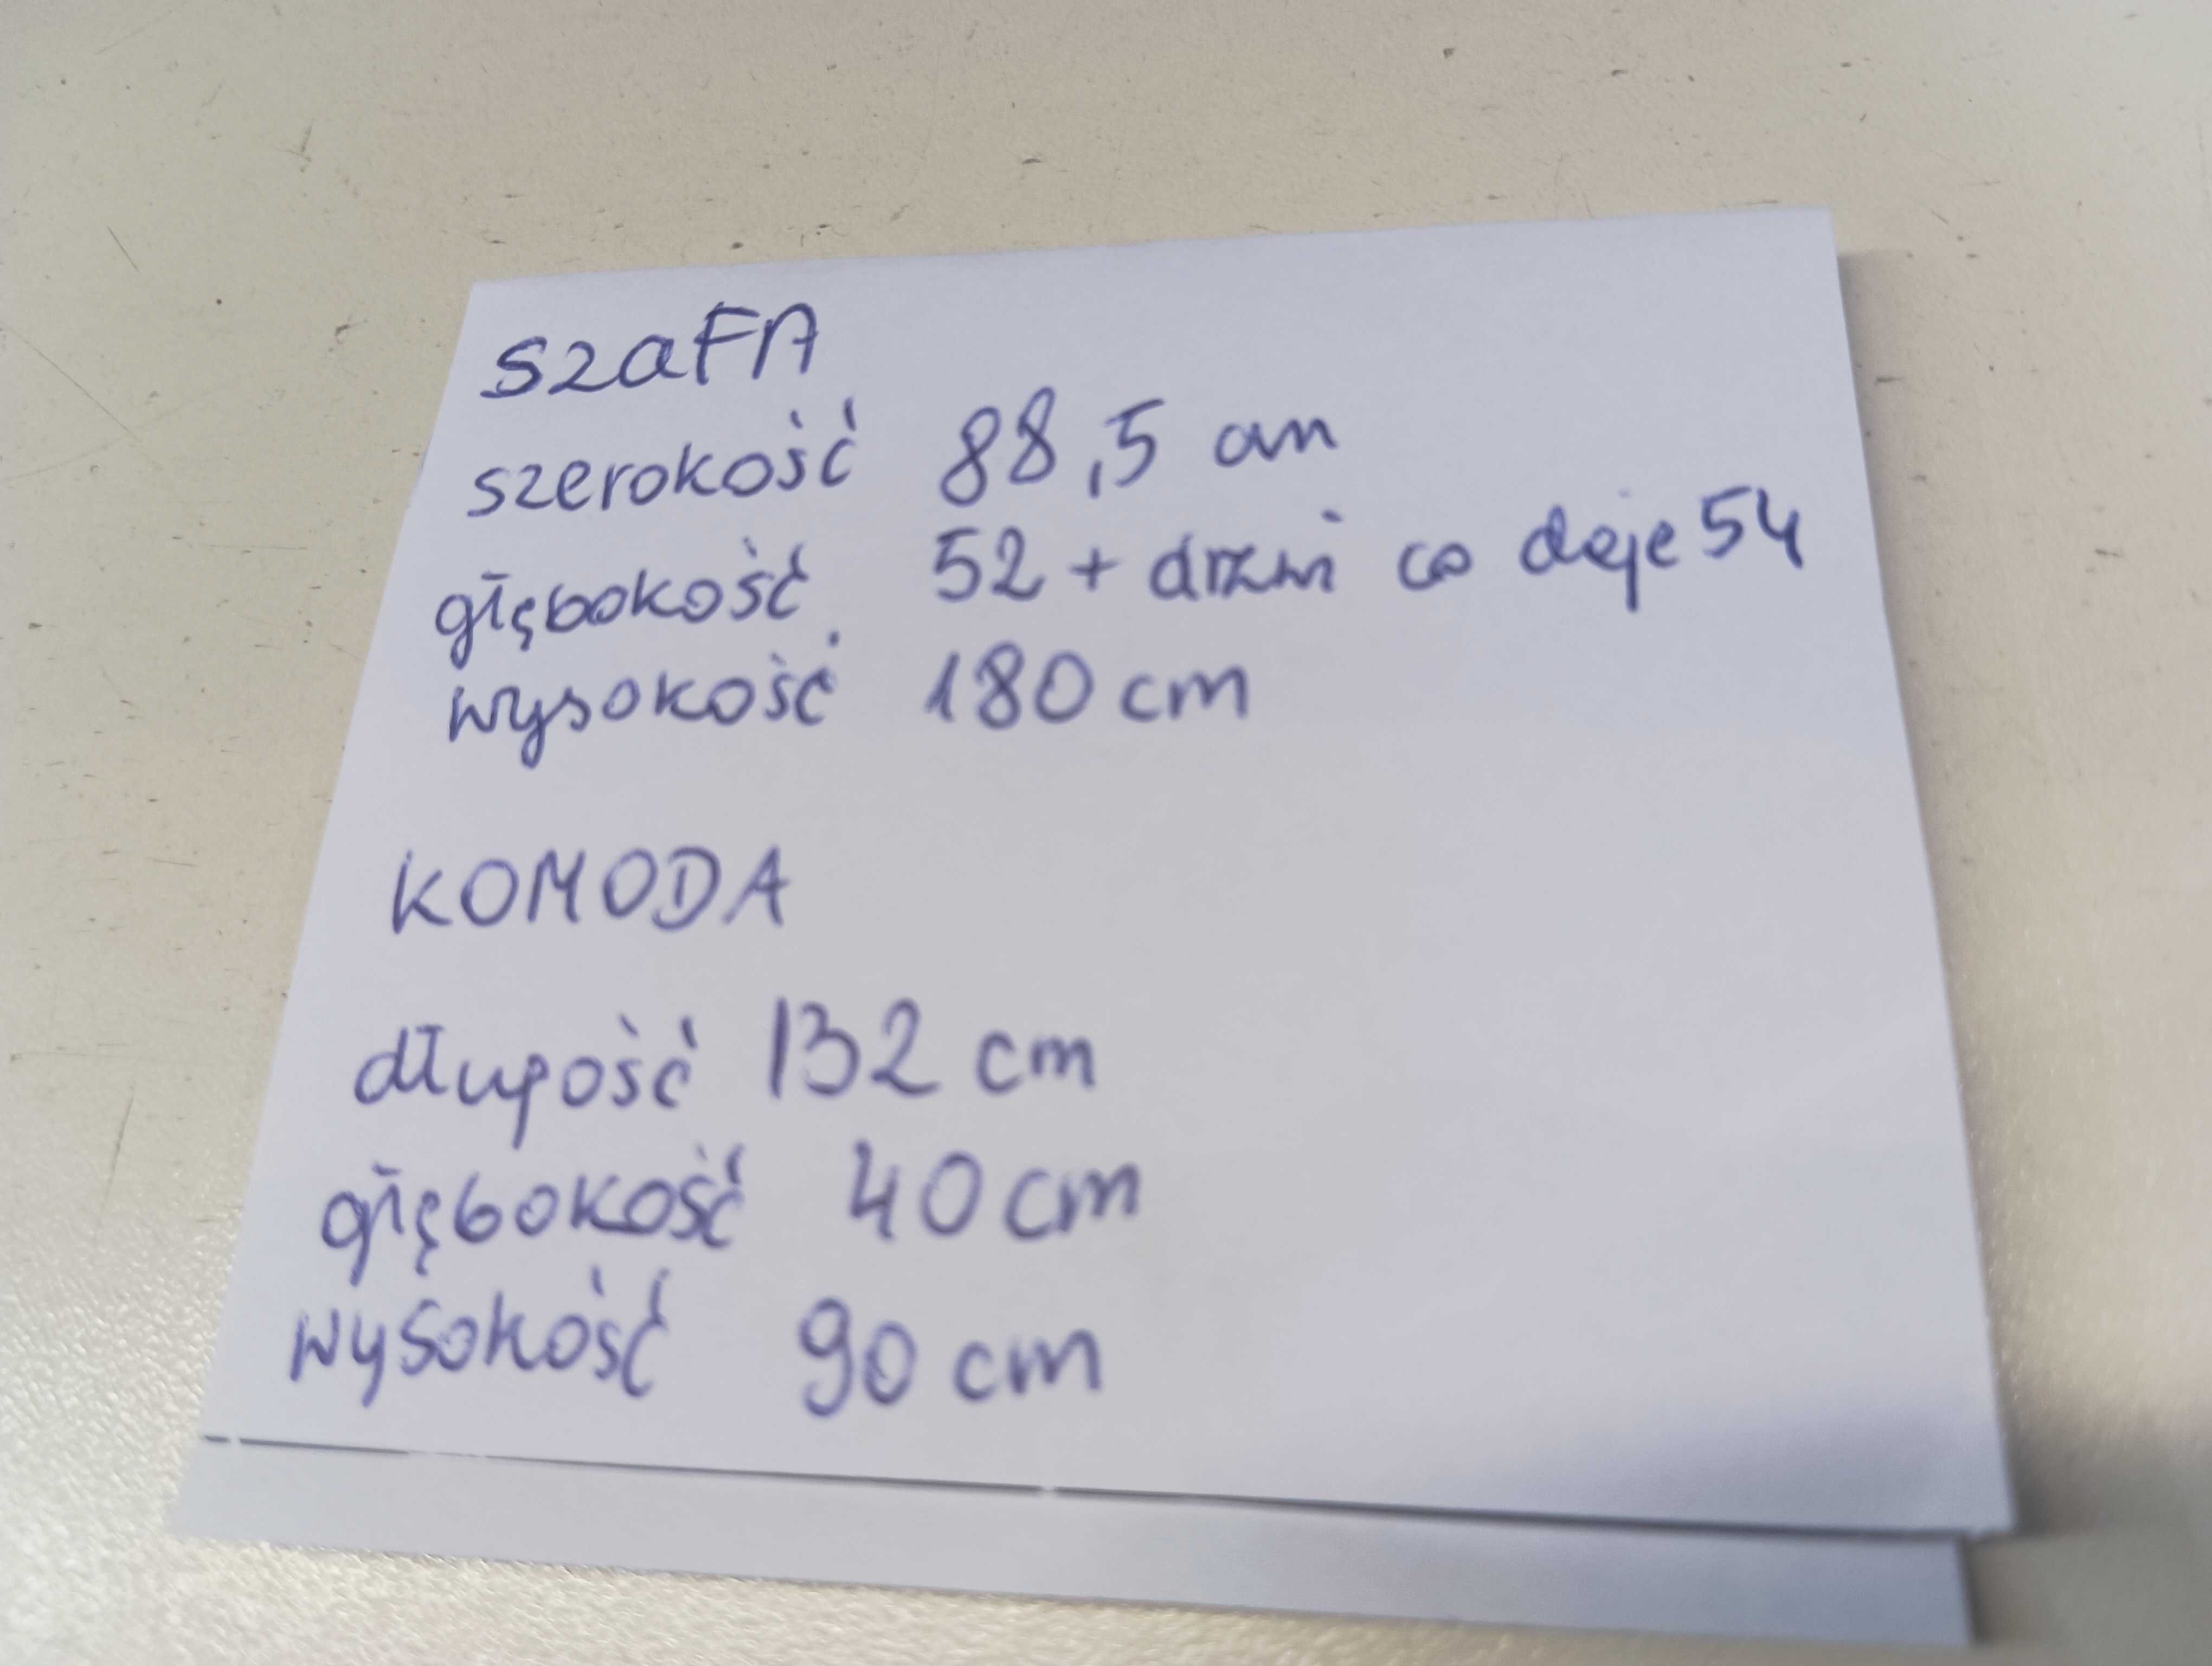 szaFA
szerokość 88,5 cm
głębokość 52 + drzwi co daje 54
wysokość 180 cm
KOMODA
długość 132 cm
głębokość 40 cm
wysokość 90 cm